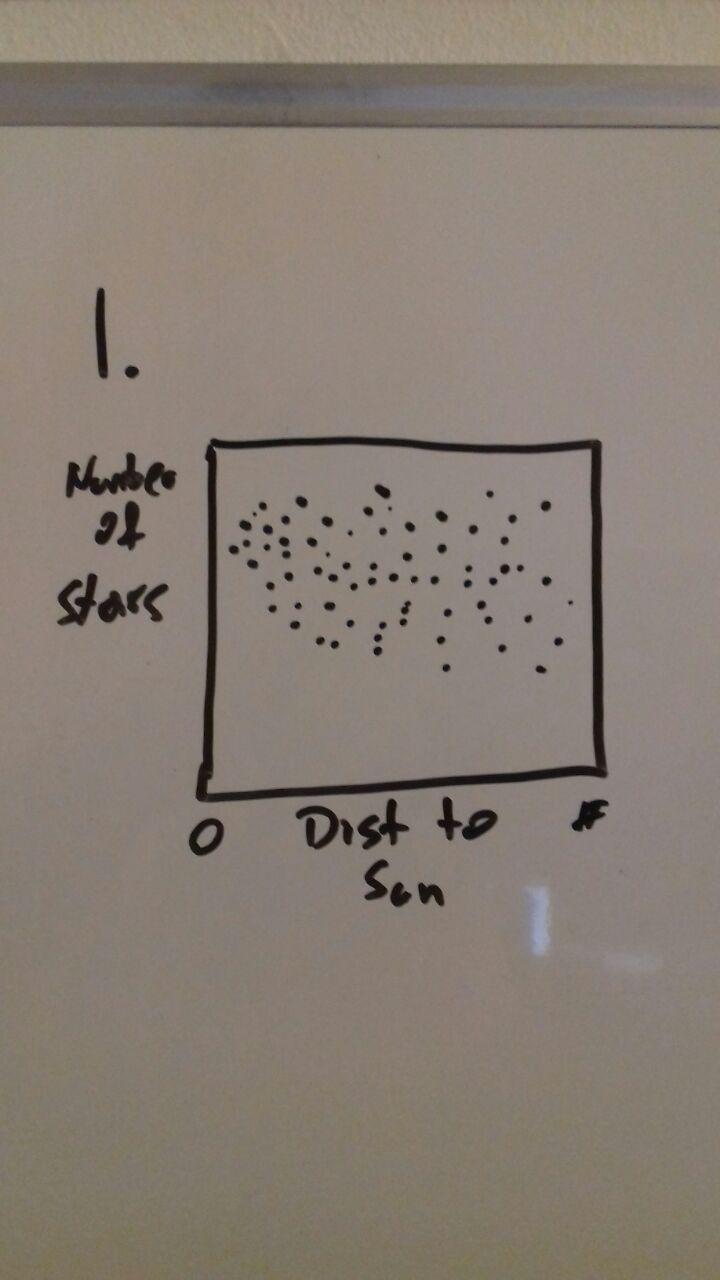 1.
Number
of
stars
0 Dist to #
Sun